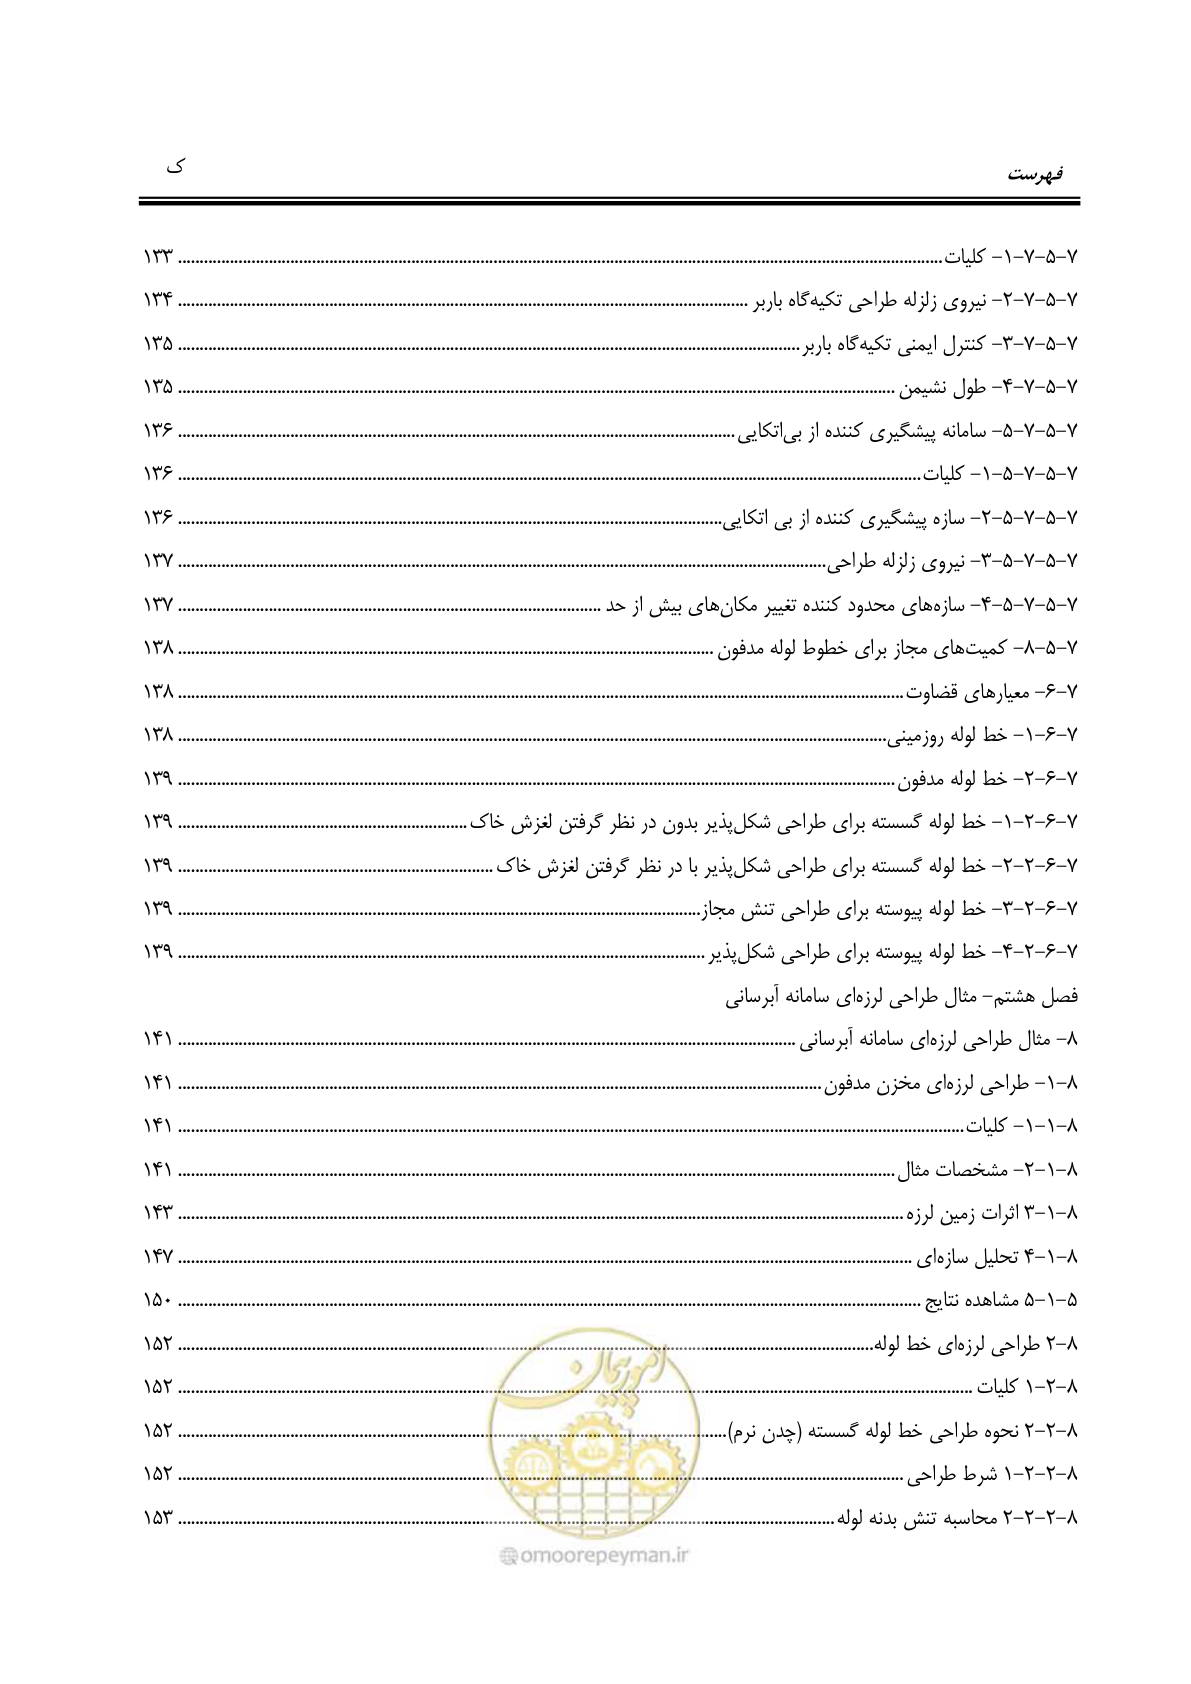 فهرست ک
۷-۵-۷-۱- کلیات ........ ۱۳۳
۷-۵-۷-۲- نیروی زلزله طراحی تکیه‌گاه باربر ........ ۱۳۴
۷-۵-۷-۳- کنترل ایمنی تکیه‌گاه باربر ........ ۱۳۵
۷-۵-۷-۴- طول نشیمن ........ ۱۳۵
۷-۵-۷-۵- سامانه پیشگیری کننده از بی‌اتکایی ........ ۱۳۶
۷-۵-۷-۵-۱- کلیات ........ ۱۳۶
۷-۵-۷-۵-۲- سازه پیشگیری کننده از بی اتکایی ........ ۱۳۶
۷-۵-۷-۵-۳- نیروی زلزله طراحی ........ ۱۳۷
۷-۵-۷-۵-۴- سازه‌های محدود کننده تغییر مکان‌های بیش از حد ........ ۱۳۷
۷-۵-۸- کمیت‌های مجاز برای خطوط لوله مدفون ........ ۱۳۸
۷-۶- معیارهای قضاوت ........ ۱۳۸
۷-۶-۱- خط لوله روزمینی ........ ۱۳۸
۷-۶-۲- خط لوله مدفون ........ ۱۳۹
۷-۶-۲-۱- خط لوله گسسته برای طراحی شکل‌پذیر بدون در نظر گرفتن لغزش خاک ........ ۱۳۹
۷-۶-۲-۲- خط لوله گسسته برای طراحی شکل‌پذیر با در نظر گرفتن لغزش خاک ........ ۱۳۹
۷-۶-۲-۳- خط لوله پیوسته برای طراحی تنش مجاز ........ ۱۳۹
۷-۶-۲-۴- خط لوله پیوسته برای طراحی شکل‌پذیر ........ ۱۳۹
فصل هشتم- مثال طراحی لرزه‌ای سامانه آبرسانی
۸- مثال طراحی لرزه‌ای سامانه آبرسانی ........ ۱۴۱
۸-۱- طراحی لرزه‌ای مخزن مدفون ........ ۱۴۱
۸-۱-۱- کلیات ........ ۱۴۱
۸-۱-۲- مشخصات مثال ........ ۱۴۱
۸-۱-۳ اثرات زمین لرزه ........ ۱۴۳
۸-۱-۴ تحلیل سازه‌ای ........ ۱۴۷
۵-۱-۵ مشاهده نتایج ........ ۱۵۰
۸-۲ طراحی لرزه‌ای خط لوله ........ ۱۵۲
۸-۲-۱ کلیات ........ ۱۵۲
۸-۲-۲ نحوه طراحی خط لوله گسسته (چدن نرم) ........ ۱۵۲
۸-۲-۲-۱ شرط طراحی ........ ۱۵۲
۸-۲-۲-۲ محاسبه تنش بدنه لوله ........ ۱۵۳
امور پیمان
@omoorepeyman.ir